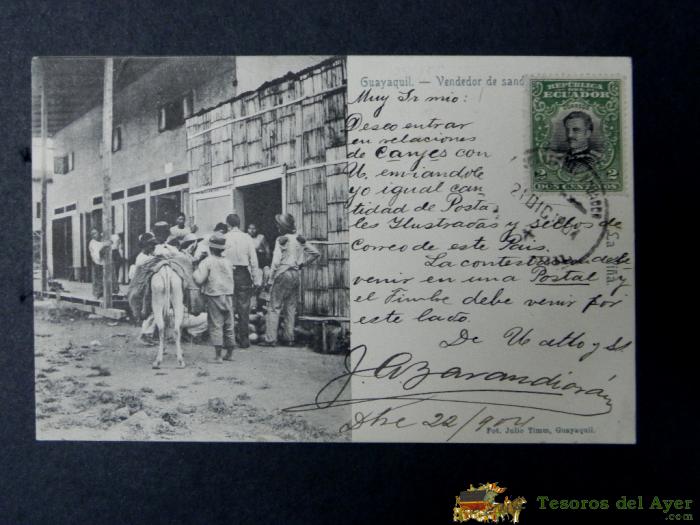 Guayaquil. — Vendedor de sand
REPÚBLICA DEL
ECUADOR
CORREOS
2 2
DOS CENTAVOS
Muy Sr mio:
Deseo entrar
en relaciones
de Canjes con
U. enviandole
yo igual can
tidad de Posta
les Ilustradas y sellos de
Correo de este Pais.
La contestacion debe
venir en una Postal y
el Timbre debe venir por
este lado.
De U atto y S.
Dbre 22/904
Fot. Julio Timm, Guayaquil.
21 DIC
Tesoros del Ayer
.com